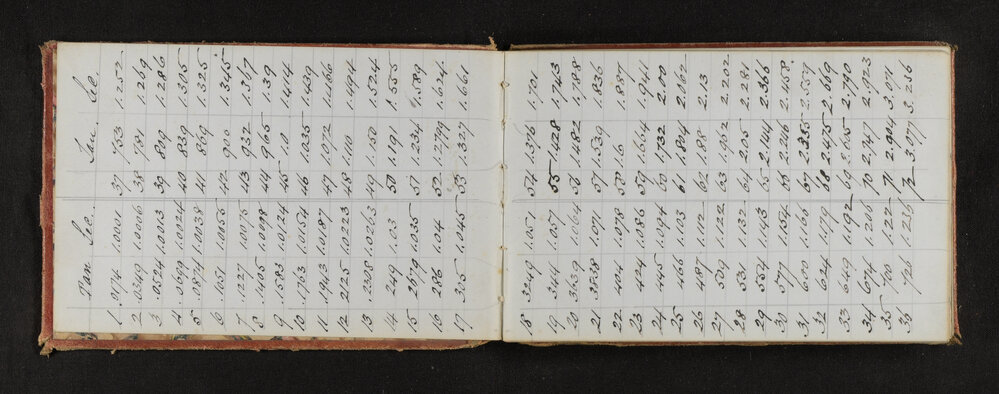 Tan Sec Tan Sec
1 .0174 1.0001 37 .753 1.252
2 .0349 1.0006 38 .781 1.269
3 .0524 1.0013 39 .809 1.286
4 .0699 1.0024 40 .839 1.305
5 .0874 1.0038 41 .869 1.325
6 .1051 1.0055 42 900 1.345
7 .1227 1.0075 43 932 1.367
8 .1405 1.0098 44 965 1.39
9 .1583 1.0124 45 1.0 1.414
10 .1763 1.0154 46 1.035 1.439
11 .1943 1.0187 47 1.072 1.466
12 2125 1.0223 48 1.110 1.494
13 .2308 1.0263 49 1.150 1.524
14 249 1.03 50 1.191 1.555
15 2679 1.035 51 1.234 1.589
16 286 1.04 52 1.2799 1.624
17 305 1.045 53 1.327 1.661
18 3249 1.051 54 1.376 1.701
19 344 1.057 55 1.428 1.743
20 3639 1.064 56 1.482 1.788
21 3838 1.071 57 1.539 1.836
22 404 1.078 58 1.6 1.887
23 424 1.086 59 1.664 1.941
24 445 1.094 60 1.732 2.00
25 466 1.103 61 1.804 2.062
26 487 1.112 62 1.88 2.13
27 509 1.122 63 1.962 2.202
28 531 1.132 64 2.05 2.281
29 554 1.143 65 2.144 2.366
30 577 1.154 66 2.246 2.458
31 600 1.166 67 2.355 2.559
32 624 1.179 68 2.475 2.669
33 649 1.192 69 2.605 2.790
34 674 1.206 70 2.747 2.923
35 700 1.22 71 2.904 3.071
36 726 1.236 72 3.077 3.236